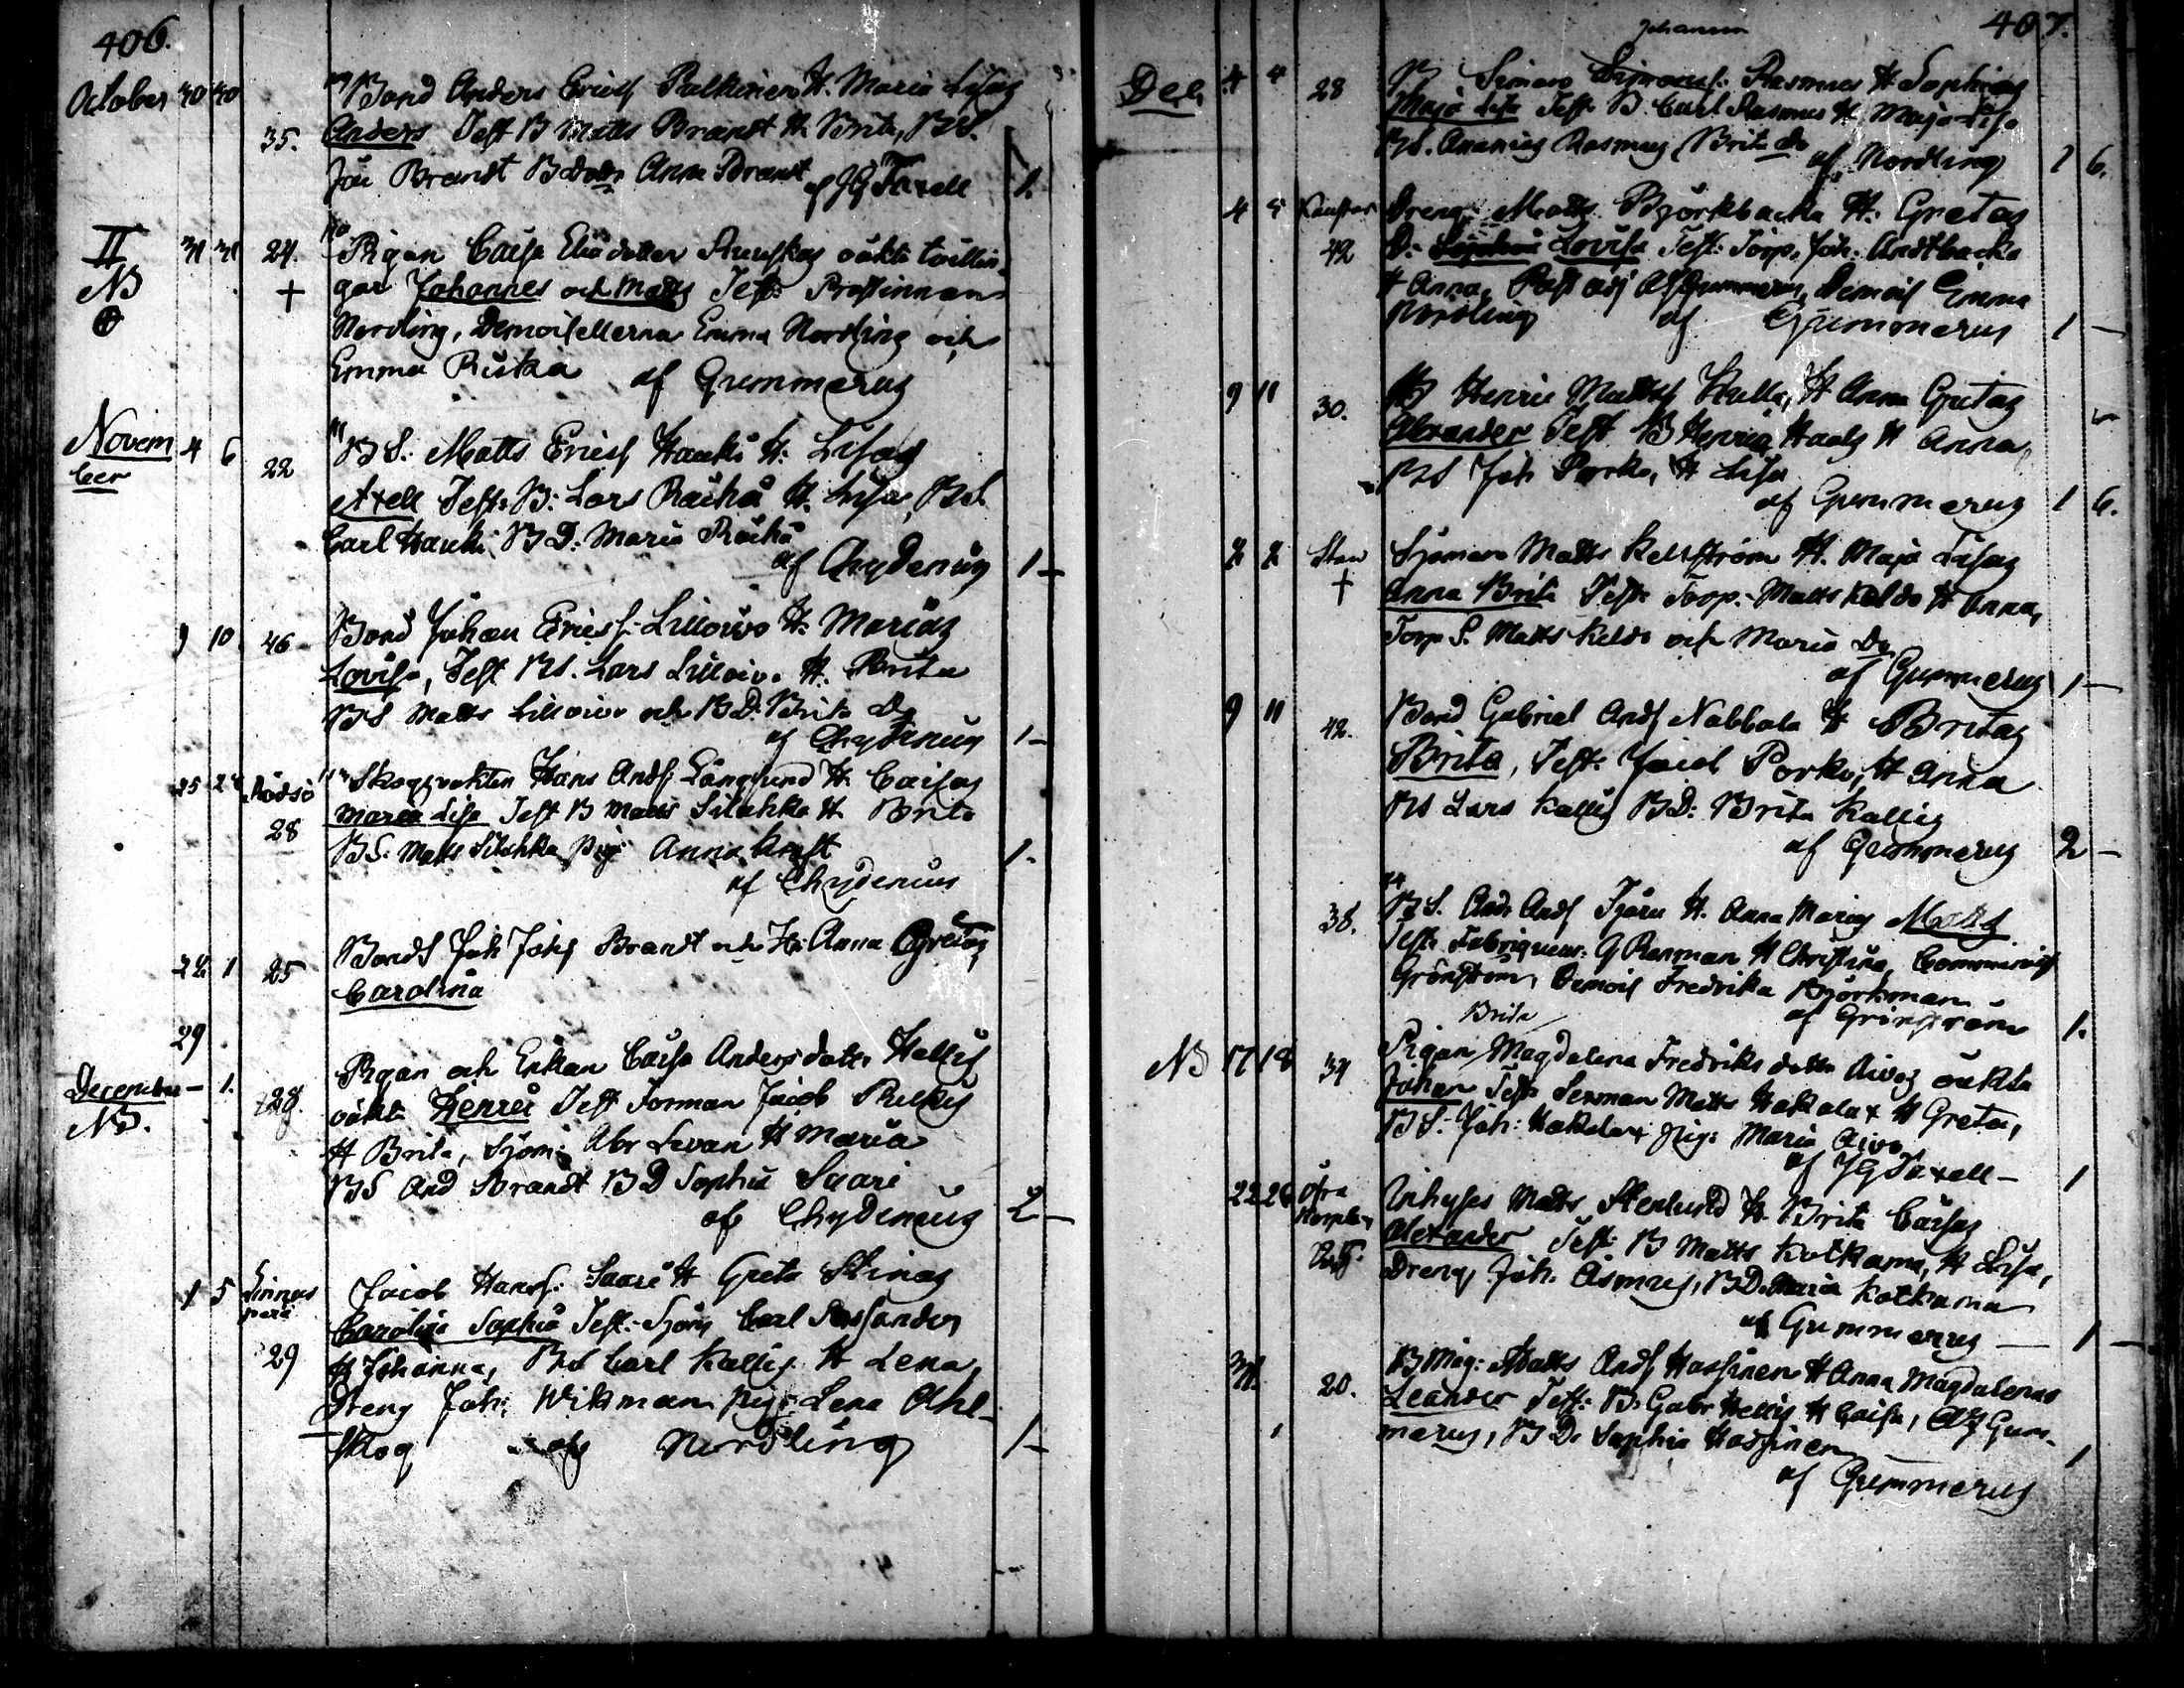 406.
October 30 30 Bond Anders Ericss Palkinen H. Maria Lisas
35. Anders Test B Matts Brandt H. Brita, BS.
Joh Brandt Bdottr Anna Brandt af JG Taxell 1.
II 31 31 24. Pigan Caisa Eliædotter oäkta tvillin-
NB + gar Johannes och Matts Test: Prostinnan
Nordling, Demoisellerna Emma Nordling och
Emma Riska af Gummerus
Novem 4 6 22 BS. Matts Ericss Hauki H. Lisas
ber Axell Test: B. Lars Räihä H. Lisa, BS.
Carl Hauki BD: Maria Räihä
af Chydenius 1 —
9 10. 46 Bond Johan Ericss. Lilloivo H. Marias
Lovisa, Test BS. Lars Lilloivo H. Brita
BS Matts Lilloivo och BD. Brita Do
af Chydenius 1 —
25 Rödsö Skogsvakten Hans Ands: Långlund H. Caisas
28 Maria Lisa Test B Matts Silahka H. Brita
BS. Matts Silahka pig: Anna
af Chydenius 1.
1 25 Bonds Joh Johs Brandt och H: Anna Gretas
Carolina
29
Pigan och Enkan Caisa Andersdotter Hallis
December — 1. 28. oäkta Henric Test Forman Jacob
NB. H Brita, Sjöm: Abr Levan H Maria
BS And Brandt BD Sophia Saari
af Chydenius 2 —
1 5 Linnus Jacob Hanss: Saari H Greta Stinas
perä Carolina Sophia Test: Sjöm Carl
29 H Johanna, BS Carl Kallis H Lena,
Dreng Joh: Wikman pig: Lena Ahl-
skog af Nordling 1 —
Johanna 407.
Dec. 4 4 28 B Simon Simonss: Rasmus H Sophias
Maja Lisa Test B. Carl Rasmus H Maja Lisa
BS. Ananias Rasmus, Brita Do
af Nordling 1 6.
4 5 Dreng: Matts Björkbacka H: Gretas
42 D: Sophia Lovisa Test: Torp. Joh: Andtbacka
H Anna, Gummerus, Demois Emma
Nordling af Gummerus 1 —
9 11 30. B Henric Mattss H Anna Gretas
Alexander Test B Henric H Anna,
BS Joh Porko, H Lisa
af Gummerus 1 6.
2 2 Stan Sjöman Matts Kellström H. Maja Lisas
+ Anna Brita Test: Torp. Matts Keldo H Anna,
Torp S. Matts Keldo och Maria Do
af Gummerus 1 —
9 11 42. Bond Gabriel Ands Nabbala H Britas
Brita, Test: Jacob Porko, H Anna
BS Lars Kallis BD: Brita Kallis
af Gummerus 2 —
38. BS. And. Ands Tjäru H. Anna Marias Matts
Test: Fabriqueur. G Renman H Christina,
Grönström, Demois Fredrika Björkman
af Grönström 1.
Brita
NB 17 18 34 Pigan Magdalena Fredriksdotter Aivos oäkta
Johan Test: Sexman Matts Hakala H Greta,
BS. Joh: Hakala pig: Maria Aivo
af JG Taxell — 1
22 26 Öfra Inhyses Matts Stenlund H. Brita Caisas
Korpl. Alexander Test: B Matts Kotkama, H Lisa,
25. Dreng Joh. Åsmus, BD. Maria Kotkama
af Gummerus — 1 —
31. 20. B Måg: Matts Ands Hassinen H Anna Magdalenas
Leander Test: B. Gabr Hellis H Caisa, Gum-
merus, BD. Sophia Hassinen 1
af Gummerus